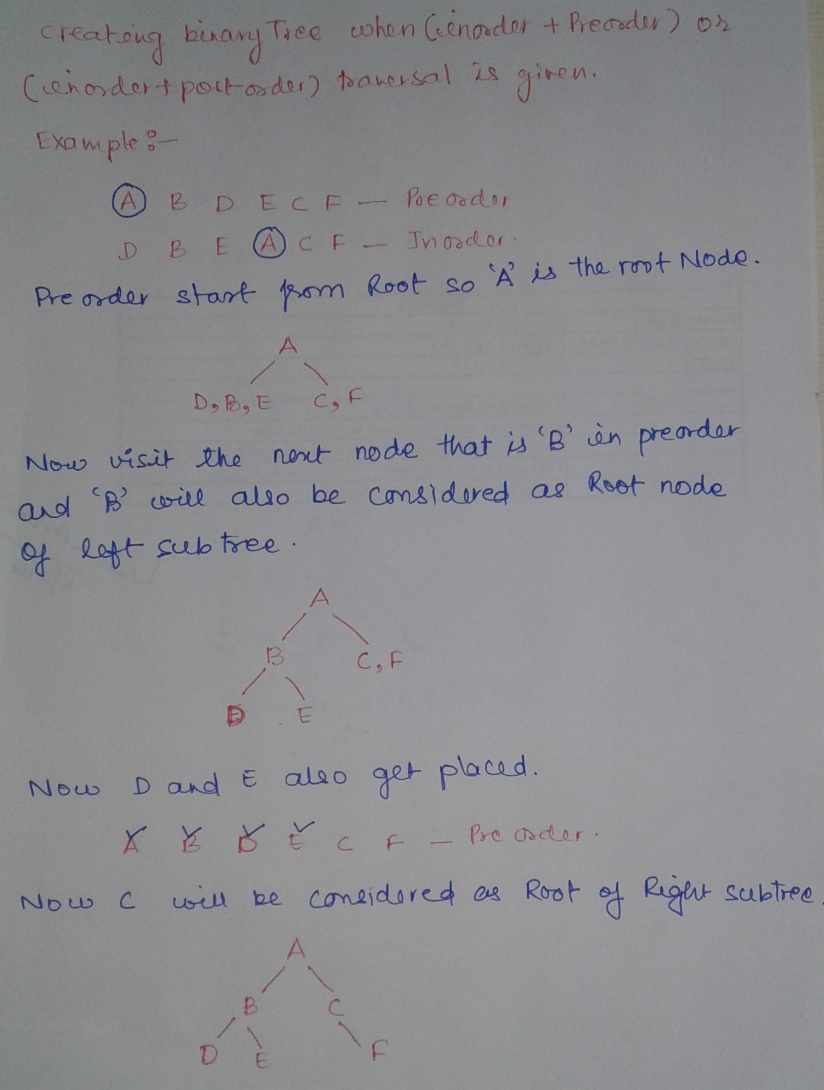 Creating binary Tree when (inorder + Preorder) or
(inorder + post-order) traversal is given.
Example :-
A B D E C F — Preorder
D B E A C F — Inorder.
Pre order start from Root so 'A' is the root Node.
A
D, B, E C, F
Now visit the next node that is 'B' in preorder
and 'B' will also be considered as Root node
of left subtree.
A
B C, F
D E
Now D and E also get placed.
A B D E C F — Pre order.
Now C will be considered as Root of Right subtree.
A
B C
D E F